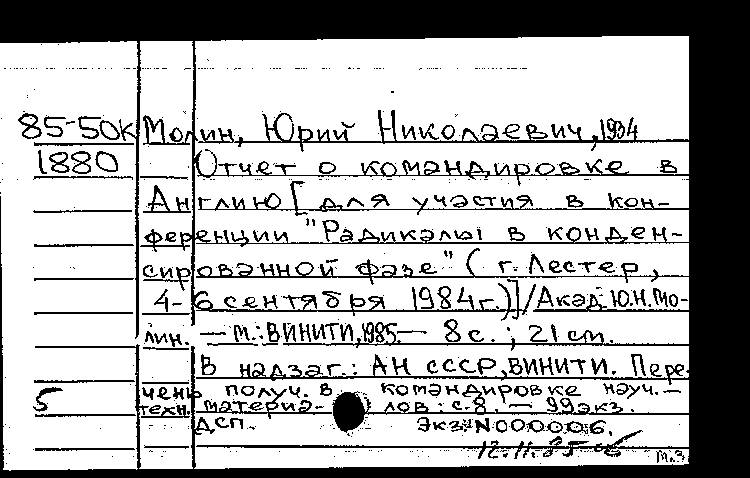 85-50К Молин, Юрий Николаевич, 1934
1880 Отчет о командировке в
Англию [для участия в кон-
ференции "Радикалы в конден-
сированной фазе" (г. Лестер,
4-6 сентября 1984г.)]/Акад. Ю.Н. Мо-
лин. — М.: ВИНИТИ, 1985. — 8 с. ; 21 см.
В надзаг.: АН СССР, ВИНИТИ. Пере-
5 чень получ. в командировке науч.-
техн. материа- лов: с. 8. — 99 экз.
ДСП. Экз. N000006.
12.11.85
М.З